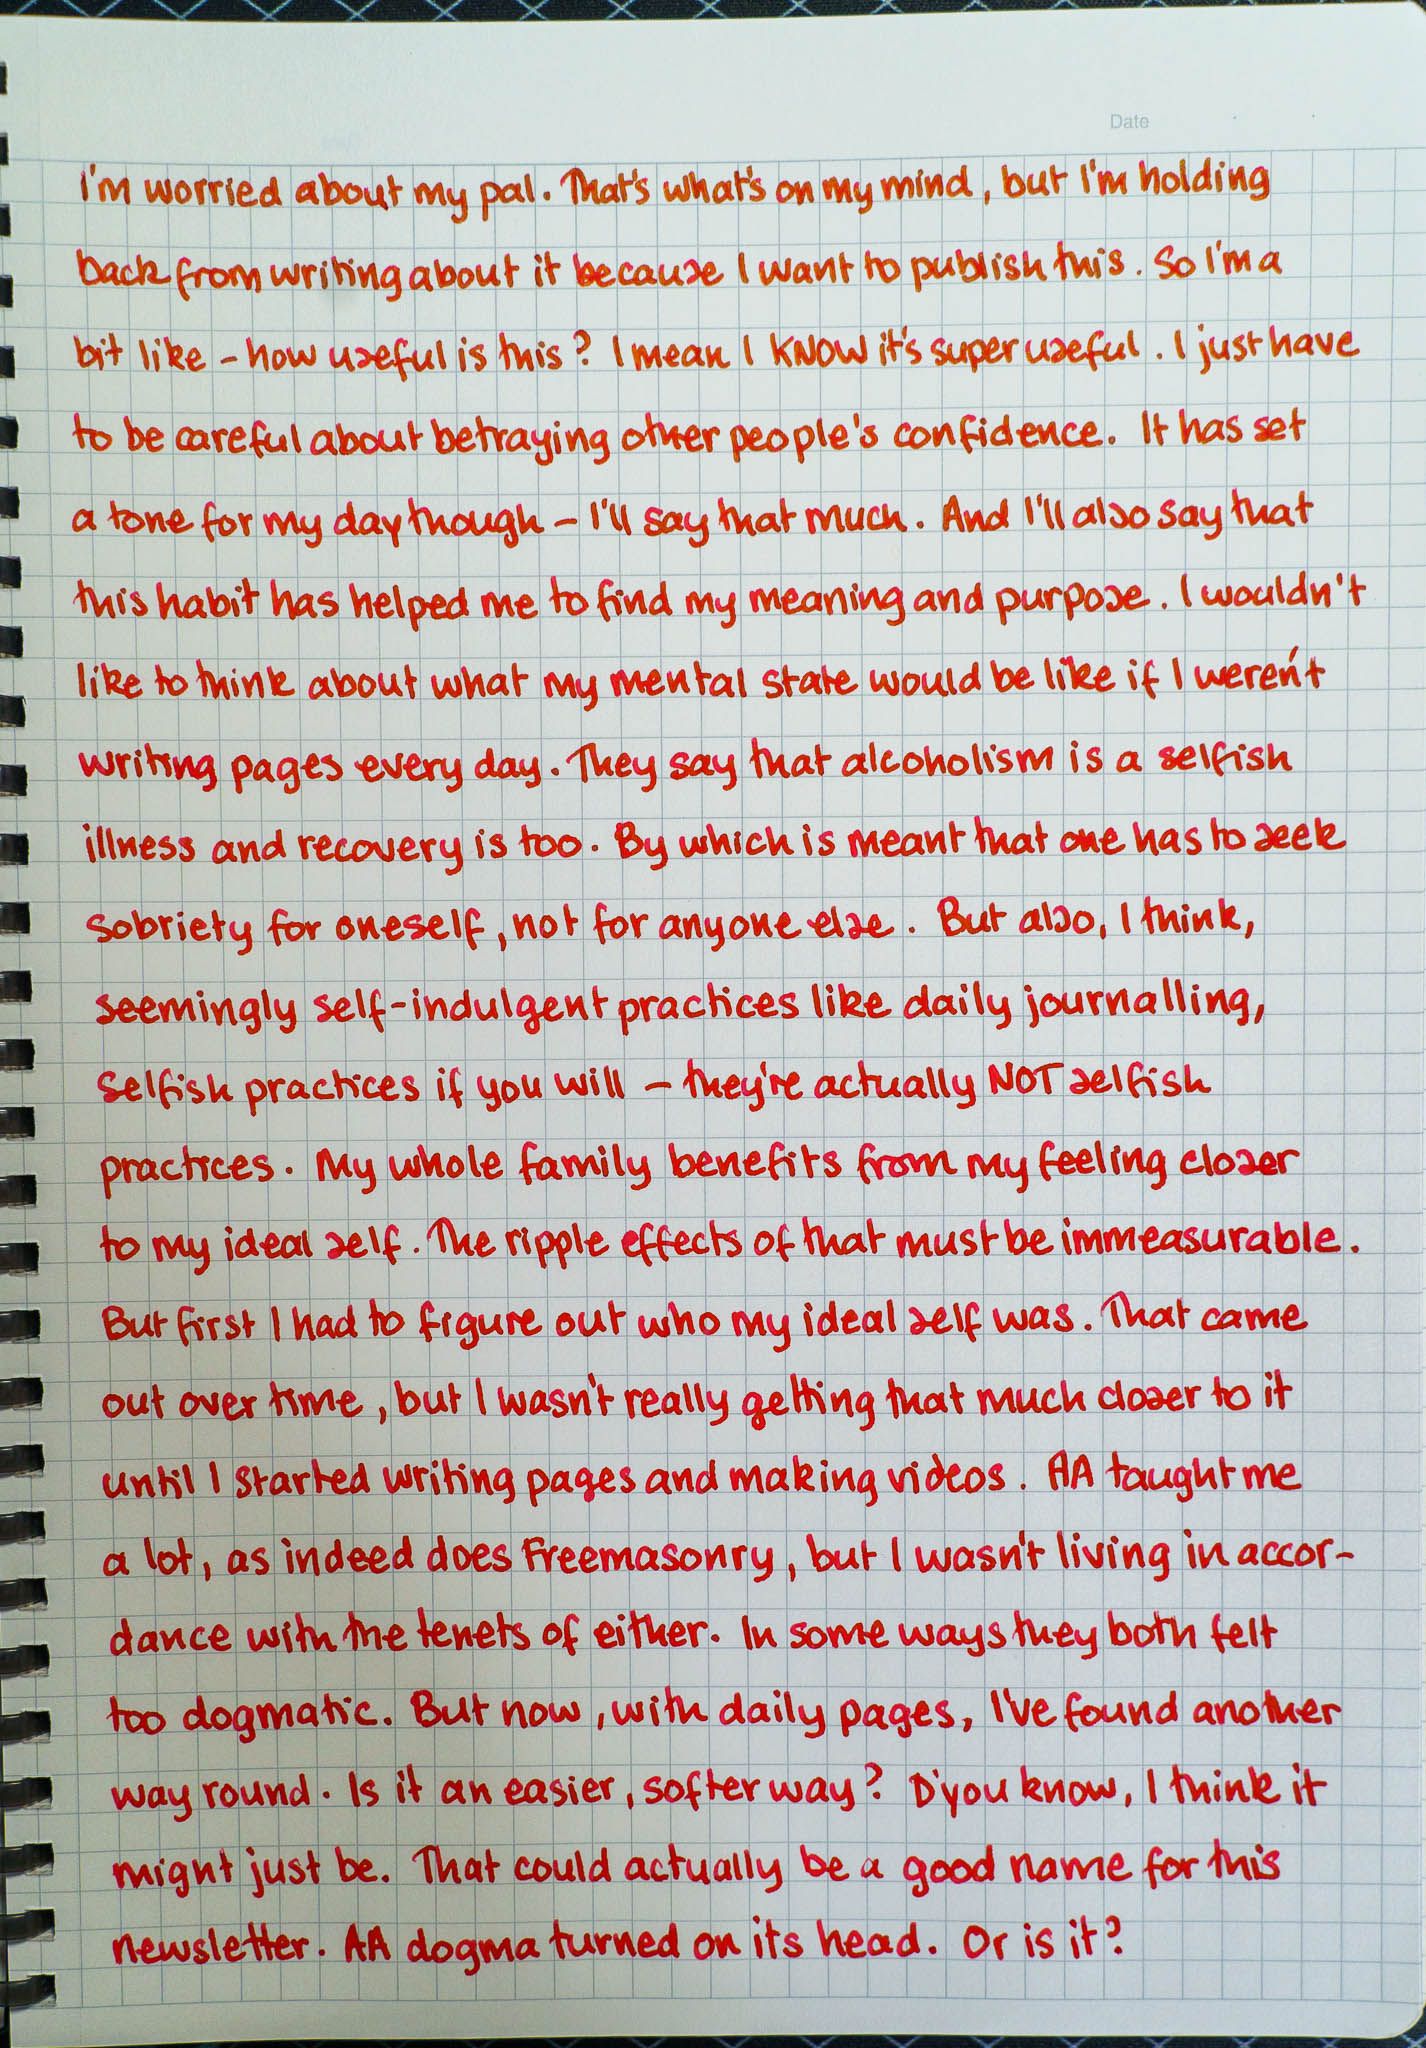 Date
I'm worried about my pal. That's what's on my mind, but I'm holding
back from writing about it because I want to publish this. So I'm a
bit like – how useful is this? I mean I KNOW it's super useful. I just have
to be careful about betraying other people's confidence. It has set
a tone for my day though – I'll say that much. And I'll also say that
this habit has helped me to find my meaning and purpose. I wouldn't
like to think about what my mental state would be like if I weren't
writing pages every day. They say that alcoholism is a selfish
illness and recovery is too. By which is meant that one has to seek
sobriety for oneself, not for anyone else. But also, I think,
seemingly self-indulgent practices like daily journalling,
selfish practices if you will – they're actually NOT selfish
practices. My whole family benefits from my feeling closer
to my ideal self. The ripple effects of that must be immeasurable.
But first I had to figure out who my ideal self was. That came
out over time, but I wasn't really getting that much closer to it
until I started writing pages and making videos. AA taught me
a lot, as indeed does Freemasonry, but I wasn't living in accor-
dance with the tenets of either. In some ways they both felt
too dogmatic. But now, with daily pages, I've found another
way round. Is it an easier, softer way? D'you know, I think it
might just be. That could actually be a good name for this
newsletter. AA dogma turned on its head. Or is it?